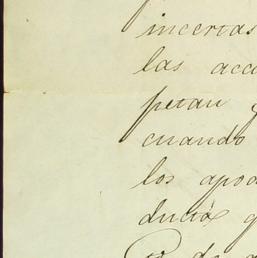 incertas
las acc
petan
cuando
los apod
ducia q